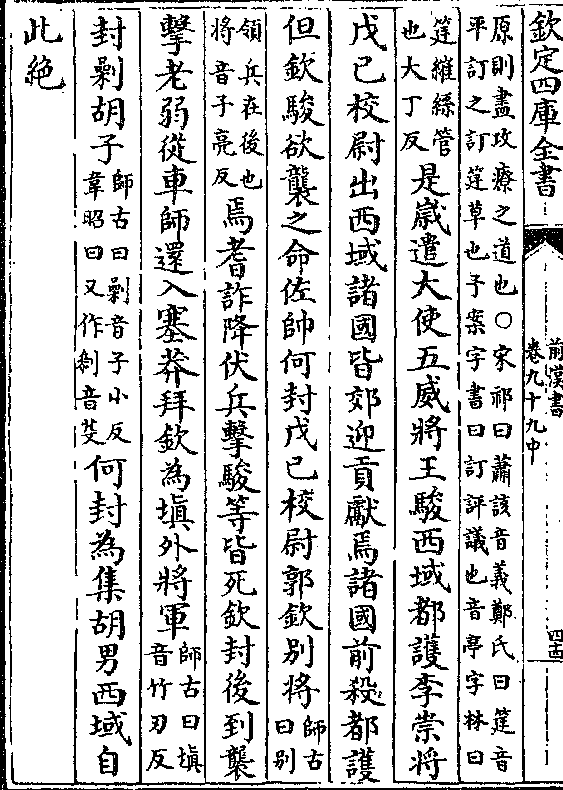 欽定四庫全書
前漢書
卷九十九中
四十四
原則盡攻療之道也○宋祁曰蕭該音義鄭氏曰筳音
平訂之訂筳草也予案字書曰訂評議也音亭字林曰
筳繀絲管
也大丁反
是歲遣大使五威將王駿西域都護李崇將
戊己校尉出西域諸國皆郊迎貢獻焉諸國前殺都護
但欽駿欲襲之命佐帥何封戊己校尉郭欽别將
師古
曰别
領兵在後也
將音子亮反
焉耆詐降伏兵擊駿等皆死欽封後到襲
擊老弱從車師還入塞莽拜欽為塡外將軍
師古曰塡
音竹刃反
封剿胡子
師古曰剿音子小反
韋昭曰又作音芟
何封為集胡男西域自
此絶